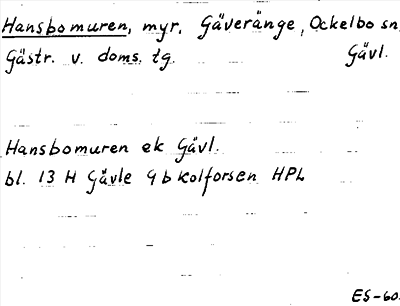 Hansbomuren, myr. Gäveränge, Ockelbo sn,
Gästr. v. doms. tg. Gävl.
Hansbomuren ek Gävl.
bl. 13 H Gävle 9 b Kolforsen HPL
ES-60